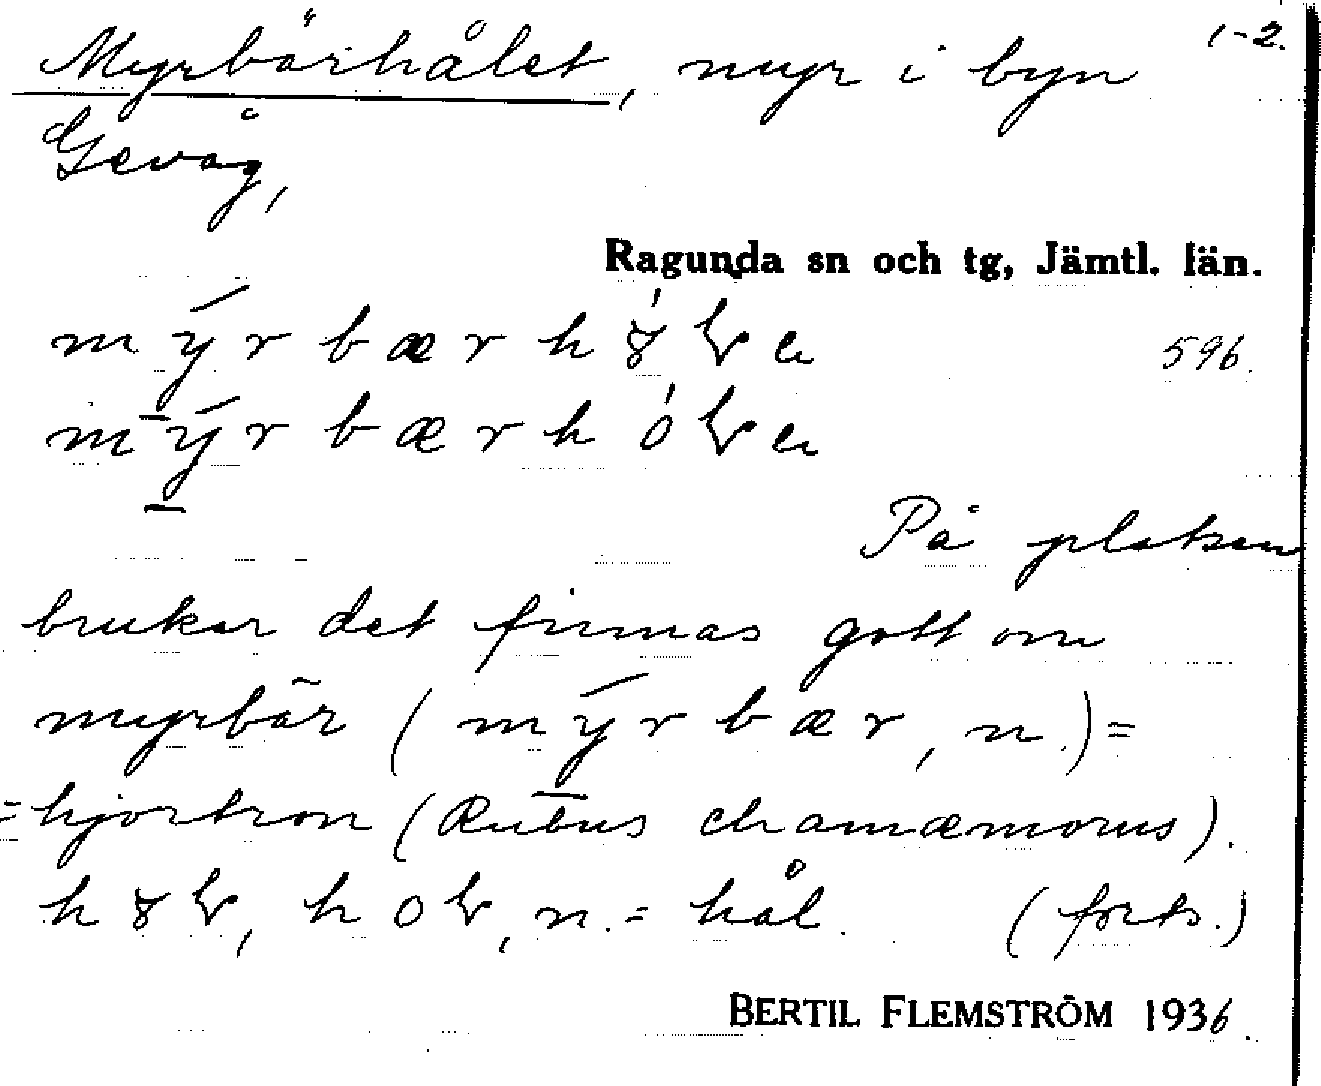 Myrbärhålet, myr i byn 1-2.
Gevåg,
Ragunda sn och tg, Jämtl. län.
596.
På platsen
brukar det finnas gott om
myrbär (mýrbær, n.)=
=hjortron (Rubus chamæmorus).
n. = hål. (forts.)
BERTIL FLEMSTRÖM 1936